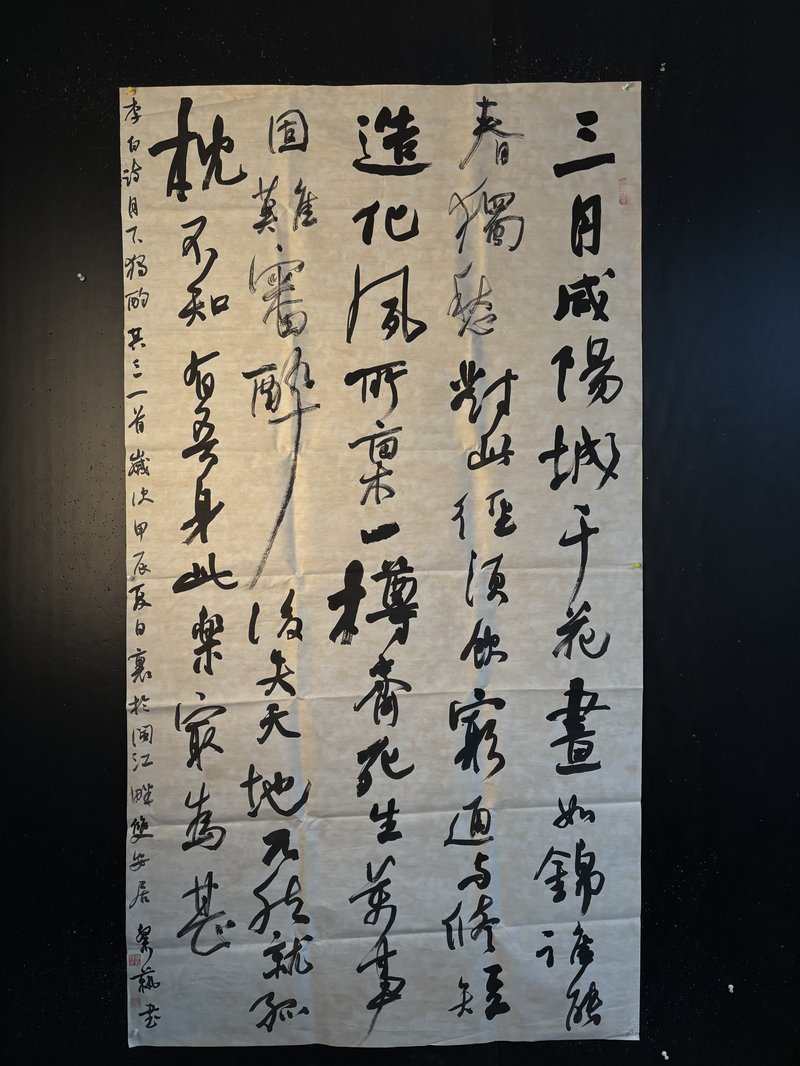 三月咸陽城千花晝如錦誰能
春獨愁對此徑須飲窮通与修短
造化夙所稟一樽齊死生萬事
固難審醉後失天地兀然就孤
枕不知有吾身此樂最為甚
李白詩月下獨酌其三一首歲次甲辰夏日於閩江畔雙安居書